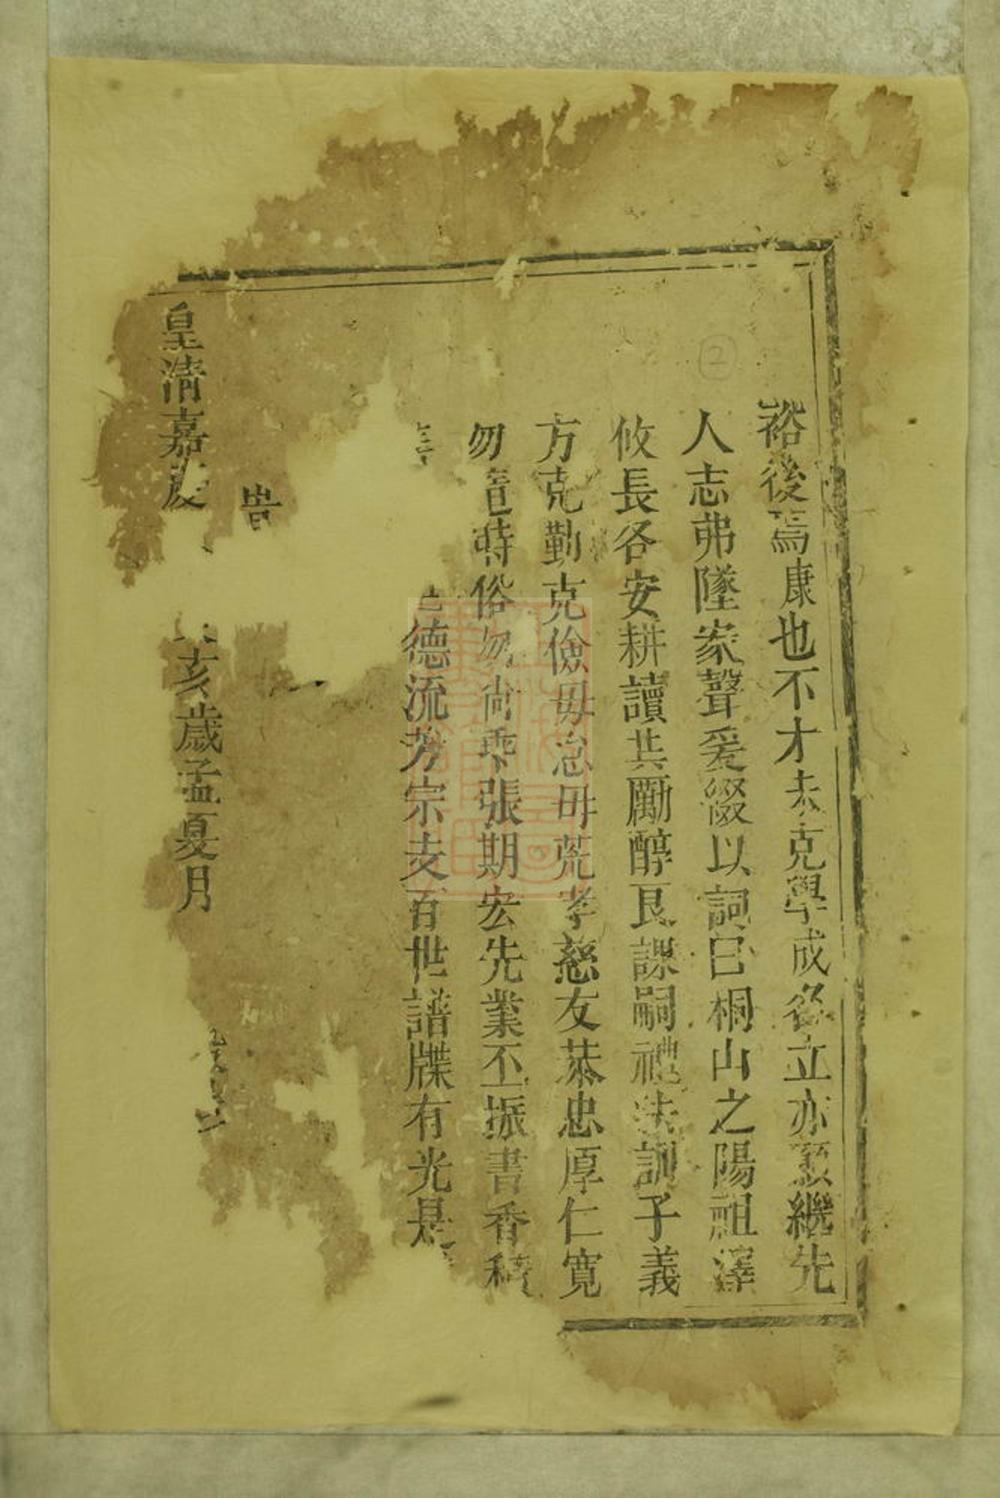 ②
裕後焉康也不才未克學成名立亦願繼先
人志弗墜家聲爰綴以詞曰桐山之陽祖澤
攸長各安耕讀共勵醇良謀嗣禮法訓子義
方克勤克儉毋怠毋荒孝慈友恭忠厚仁寬
勿 時俗勿尚乖張期宏先業丕振書香積
德流芳宗支百世譜牒有光是
旹
皇清嘉慶 亥歲孟夏月